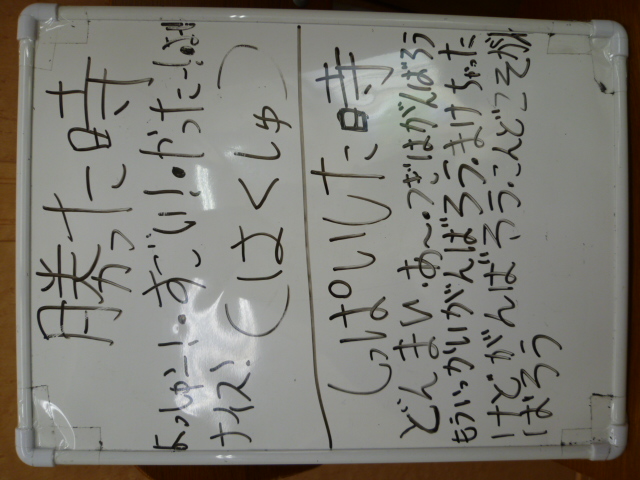 勝った時
よっしゃー!・すごい!・かったー!
ナイス! (はくしゅ)
しっぱいした時
どんまい・あ〜・つぎはがんばろう
もういっかいがんばろう・まけちゃった
けどがんばろう・こんどこそがん
ばろう